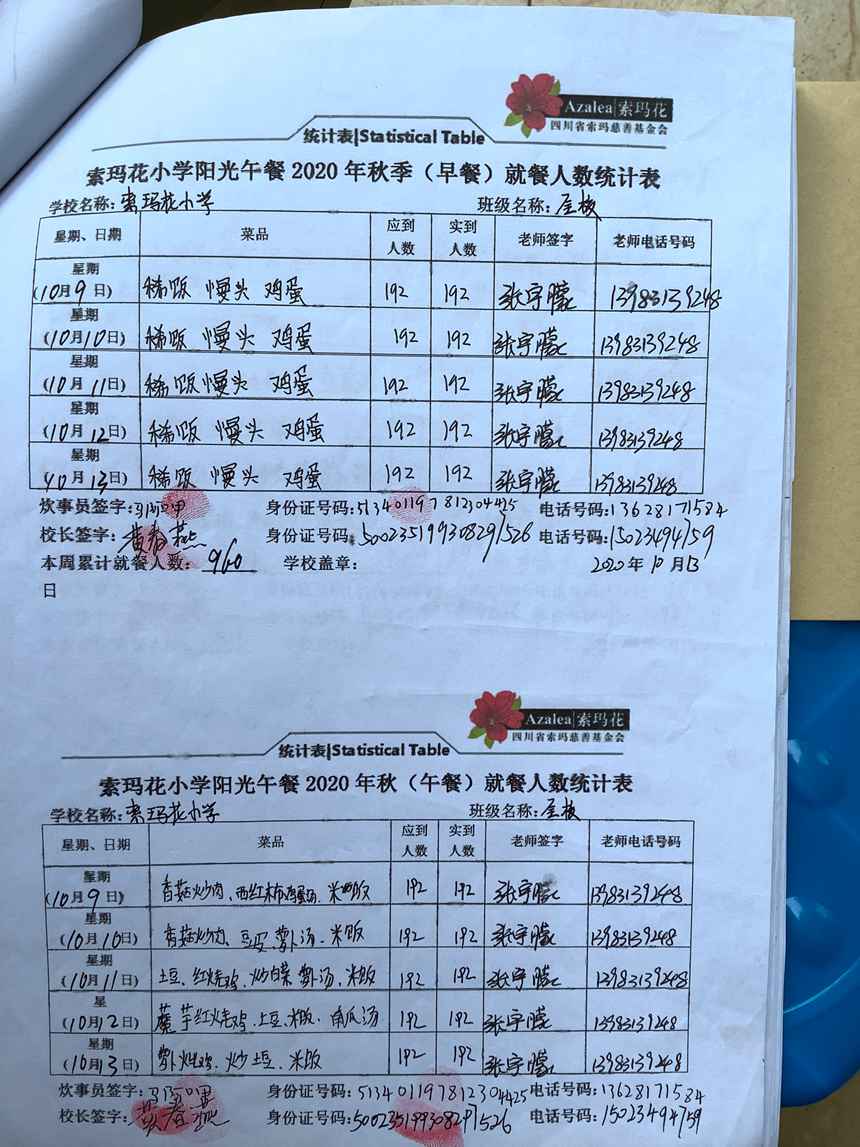 Azalea 索玛花
四川省索玛慈善基金会
统计表|Statistical Table
索玛花小学阳光午餐 2020 年秋季（早餐）就餐人数统计表
学校名称：索玛花小学 班级名称：全校
星期、日期 菜品 应到人数 实到人数 老师签字 老师电话号码
星期（10月9日） 稀饭 馒头 鸡蛋 192 192 张宇曚 13983139248
星期（10月10日） 稀饭 馒头 鸡蛋 192 192 张宇曚 13983139248
星期（10月11日） 稀饭 馒头 鸡蛋 192 192 张宇曚 13983139248
星期（10月12日） 稀饭 馒头 鸡蛋 192 192 张宇曚 13983139248
星期（10月13日） 稀饭 馒头 鸡蛋 192 192 张宇曚 13983139248
炊事员签字： 身份证号码：513401197812304425 电话号码：13628171584
校长签字：黄春燕 身份证号码：500235199308291526 电话号码：15023494759
本周累计就餐人数：960 学校盖章： 2020年10月13
日
Azalea 索玛花
四川省索玛慈善基金会
统计表|Statistical Table
索玛花小学阳光午餐 2020 年秋（午餐）就餐人数统计表
学校名称：索玛花小学 班级名称：全校
星期、日期 菜品 应到人数 实到人数 老师签字 老师电话号码
星期（10月9日） 香菇炒肉、西红柿鸡蛋汤、米饭 192 192 张宇曚 13983139248
星期（10月10日） 香菇炒肉、豆皮、萝卜汤、米饭 192 192 张宇曚 13983139248
星期（10月11日） 土豆、红烧鸡、炒白菜 萝卜汤、米饭 192 192 张宇曚 13983139248
星（10月12日） 魔芋红烧鸡、土豆、米饭、南瓜汤 192 192 张宇曚 13983139248
星期（10月13日） 萝卜炖鸡、炒土豆、米饭 192 192 张宇曚 13983139248
炊事员签字： 身份证号码：513401197812304425 电话号码：13628171584
校长签字：黄春燕 身份证号码：500235199308291526 电话号码：15023494759